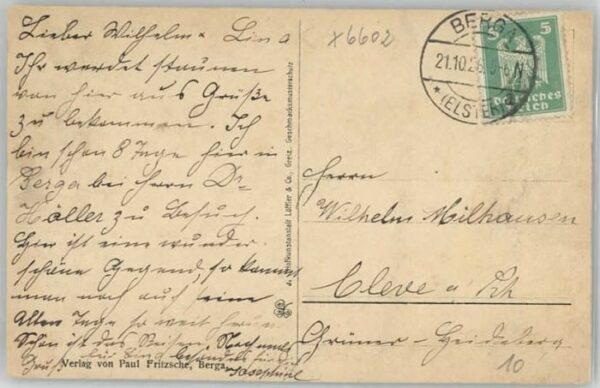 Lieber Wilhelm u Lina
Ihr werdet staunen
von hier aus Grüße
zu bekommen. Ich
bin schon 8 Tage hier in
Berga bei Herrn Dr
Höller zu Besuch.
Hier ist eine wunder
schöne Gegend, so kommt
man noch auf seine
Alten Tage so weit herum
Schön ist das Reisen. Nochmals
Gruß
Josephine
Verlag von Paul Fritzsche, Berga.
Kunstanstalt Löffler & Co., Greiz. Geschmacksmusterschutz
x6602
BERGA
21.10.26
*(ELSTER)
5
Deutsches
Reich
Herrn
Wilhelm Milhausen
Cleve a Rh
Grüner-Heideberg
10